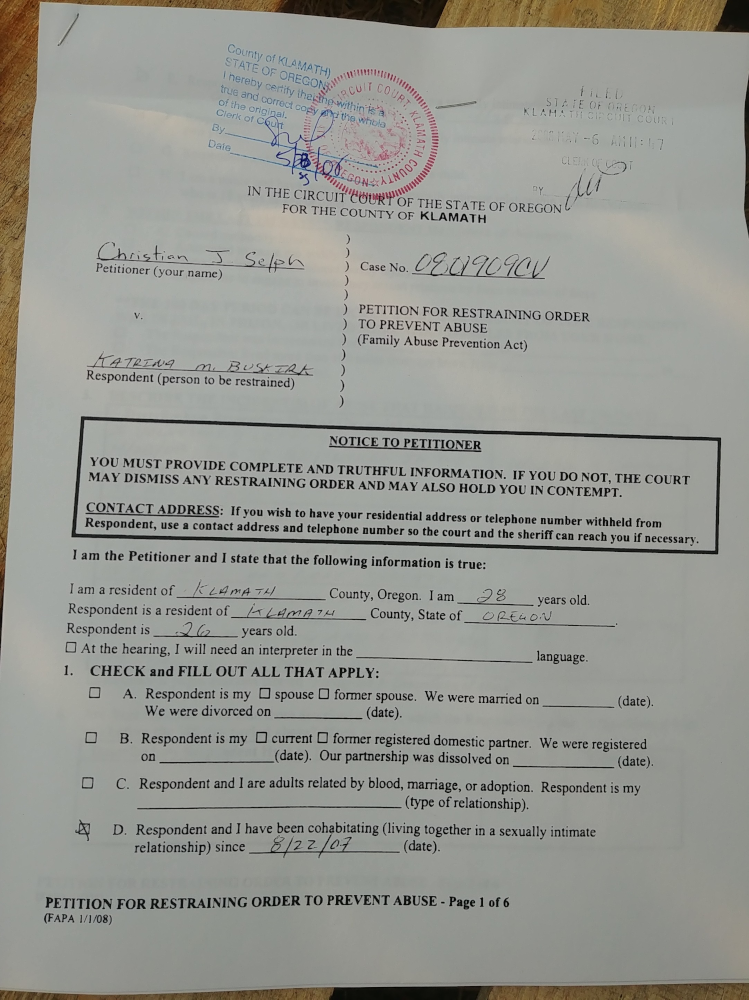 County of KLAMATH)
STATE OF OREGON)
I hereby certify that the within is a
true and correct copy and the whole
of the original.
Clerk of Court
By
Date
CIRCUIT COURT KLAMATH COUNTY OREGON
FILED
STATE OF OREGON
KLAMATH CIRCUIT COURT
MAY -6 AM 11:47
CLERK OF COURT
BY
IN THE CIRCUIT COURT OF THE STATE OF OREGON
FOR THE COUNTY OF KLAMATH
Christian J Selph
Petitioner (your name)
Case No. 0801909CV
v.
PETITION FOR RESTRAINING ORDER
TO PREVENT ABUSE
(Family Abuse Prevention Act)
KATRINA M. BUSKIRK
Respondent (person to be restrained)
NOTICE TO PETITIONER
YOU MUST PROVIDE COMPLETE AND TRUTHFUL INFORMATION. IF YOU DO NOT, THE COURT
MAY DISMISS ANY RESTRAINING ORDER AND MAY ALSO HOLD YOU IN CONTEMPT.
CONTACT ADDRESS: If you wish to have your residential address or telephone number withheld from
Respondent, use a contact address and telephone number so the court and the sheriff can reach you if necessary.
I am the Petitioner and I state that the following information is true:
I am a resident of KLAMATH County, Oregon. I am 28 years old.
Respondent is a resident of KLAMATH County, State of OREGON.
Respondent is 26 years old.
☐ At the hearing, I will need an interpreter in the ____________ language.
1. CHECK and FILL OUT ALL THAT APPLY:
☐ A. Respondent is my ☐ spouse ☐ former spouse. We were married on ________ (date).
We were divorced on ________ (date).
☐ B. Respondent is my ☐ current ☐ former registered domestic partner. We were registered
on ________ (date). Our partnership was dissolved on ________ (date).
☐ C. Respondent and I are adults related by blood, marriage, or adoption. Respondent is my
________ (type of relationship).
☒ D. Respondent and I have been cohabitating (living together in a sexually intimate
relationship) since 8/22/07 (date).
PETITION FOR RESTRAINING ORDER TO PREVENT ABUSE - Page 1 of 6
(FAPA 1/1/08)